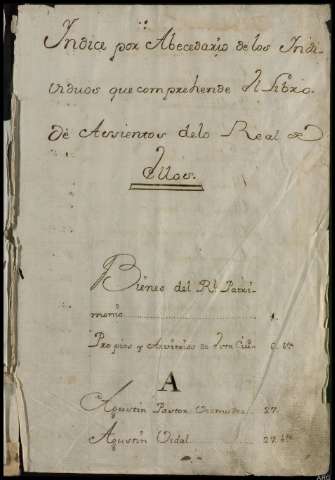 Indice por Abecedario de los Indi-
viduos que comprehende el Libro
de Assientos delo Real de
ellos.
Bienes del Rl. Patri-
monio 1.
Propios y Arvitrios de esta Ciud. 9. vta
A
Agustin Pastor 27.
Agustin Vidal 27. vta